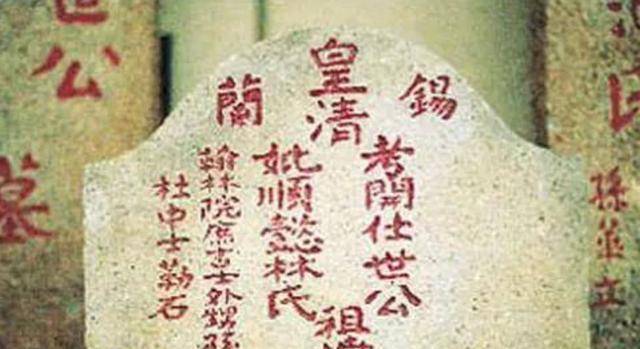 孫並立
錫
皇清
蘭
考開仕世公
祖
妣順懿林氏
翰林院庶吉士外甥孫
杜中士勒石
世公
墓